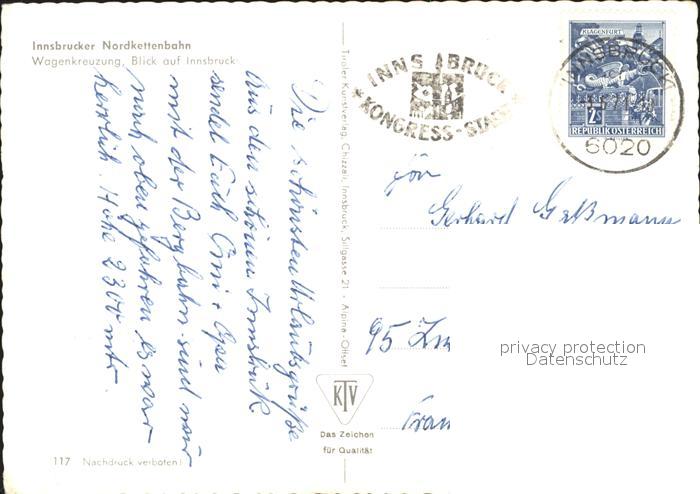 Innsbrucker Nordkettenbahn
Wagenkreuzung, Blick auf Innsbruck
Die schönsten Urlaubsgrüße
aus den schönen Innsbruk
sendet Euch Omi + Opa
mit der Bergbahn sind wir
nach oben gefahren es war
herrlich. Höhe 2300 mtr.
117 Nachdruck verboten!
Tiroler Kunstverlag Chizzali, Innsbruck, Sillgasse 21 · Alpina-Offset
KTV
Das Zeichen
für Qualität
INNSBRUCK
KONGRESS-STADT
KLAGENFURT
2S
REPUBLIK ÖSTERREICH
INNSBRUCK
6020
Gerhard Gaßmann
95 Zw
Frau
privacy protection
Datenschutz